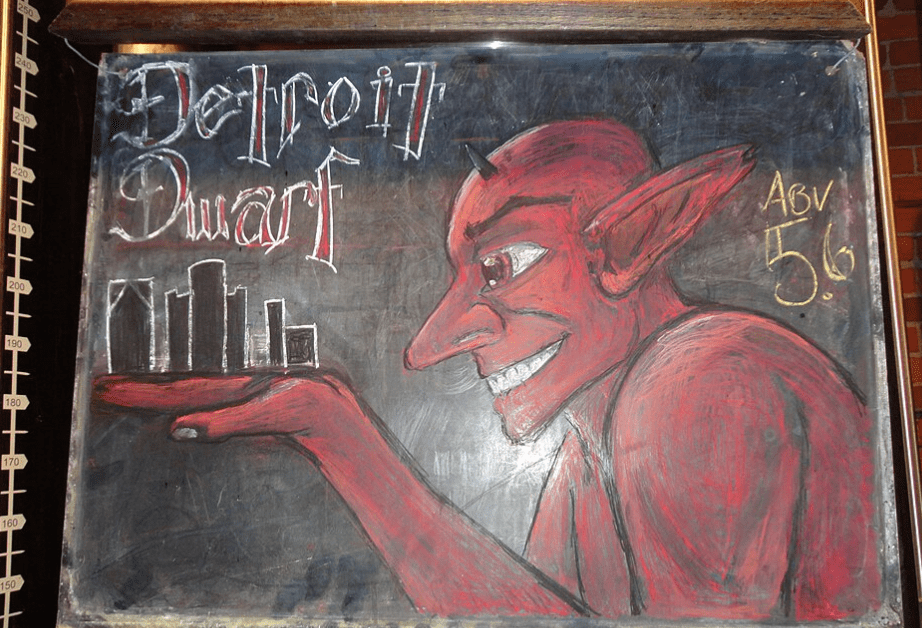 Detroit
Dwarf
ABV
5.6
250
240
230
220
210
200
190
180
170
160
150